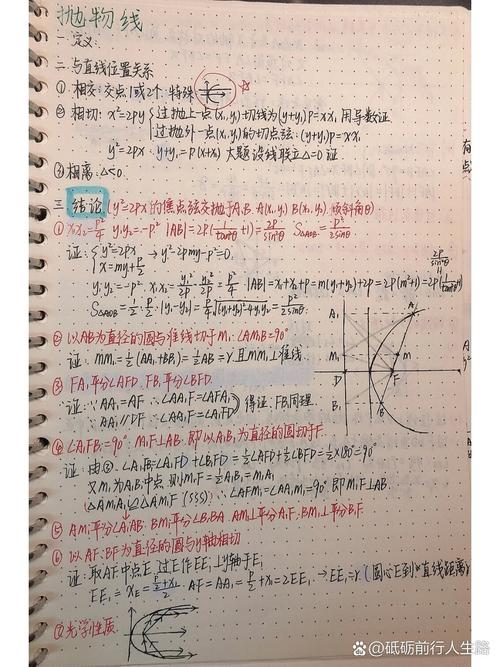 抛物线
一.定义:
二.与直线位置关系
① 相交:交点1或2个.特殊
② 相切: x²=2py {过抛上一点(x₁,y₁)切线为(y+y₁)p=xx₁ 用导数证
过抛外一点(x₁,y₁)的切点弦:(y+y₁)p=xx₁
y²=2px: y·y₁=p(x+x₁) 大题设线联立△=0证
③ 相离:△<0.
三.结论(y²=2px的焦点弦交抛于A,B. A(x₁,y₁) B(x₂,y₂) 倾斜角θ)
① x₁x₂=p²/4 y₁y₂=-p² |AB|=2p(1/tan²θ+1)=2p/sin²θ S△AOB=p²/2sinθ
证:{y²=2px
x=my+p/2 → y²-2pmy-p²=0.
2p/sin²θ
y₁y₂=-p² x₁x₂=y₁²/2p·y₂²/2p=p²/4 |AB|=x₁+x₂+p=m(y₁+y₂)+2p=2p(m²+1)=2p(1/tan²θ+1)
S△AOB=1/2·p/2·|y₁-y₂|=p/4√(y₁+y₂)²-4y₁y₂=p²/2sinθ
② 以AB为直径的圆与准线切于M₁ ∠AM₁B=90°
证: MM₁=1/2(AA₁+BB₁)=1/2AB=r 且MM₁⊥准线
③ FA₁平分∠AFD. FB₁平分∠BFD.
证:∵AA₁=AF ∴∠AA₁F=∠AFA₁
∵AA₁∥DF ∴∠AA₁F=∠A₁FD } 得证.FB₁同理
④ ∠A₁FB₁=90° M₁F⊥AB. 即以A₁B₁为直径的圆切于F
证:由③.∠A₁FB₁=∠A₁FD+∠B₁FD=1/2∠AFD+1/2∠BFD=1/2×180°=90°
又M₁为A₁B₁中点 则M₁F=1/2A₁B₁=M₁A₁
△AM₁A₁≌△AM₁F (SSS) ∴∠AFM₁=∠AA₁M₁=90° 即M₁F⊥AB.
⑤ AM₁平分∠A₁AB. BM₁平分∠B₁BA. AM₁⊥平分A₁F. BM₁⊥平分B₁F
⑥ 以AF.BF为直径的圆与y轴相切
证:取AF中点E 过E作EE₁⊥y轴于E₁
EE₁=x_E=(p/2+x₁)/2. AF=AA₁=p/2+x₁=2EE₁ → EE₁=r(圆心E到"直线距离)
⑦ 光学性质.
A₁
A
M₁
M
D
F
B₁
B
有
点
@砥砺前行人生路